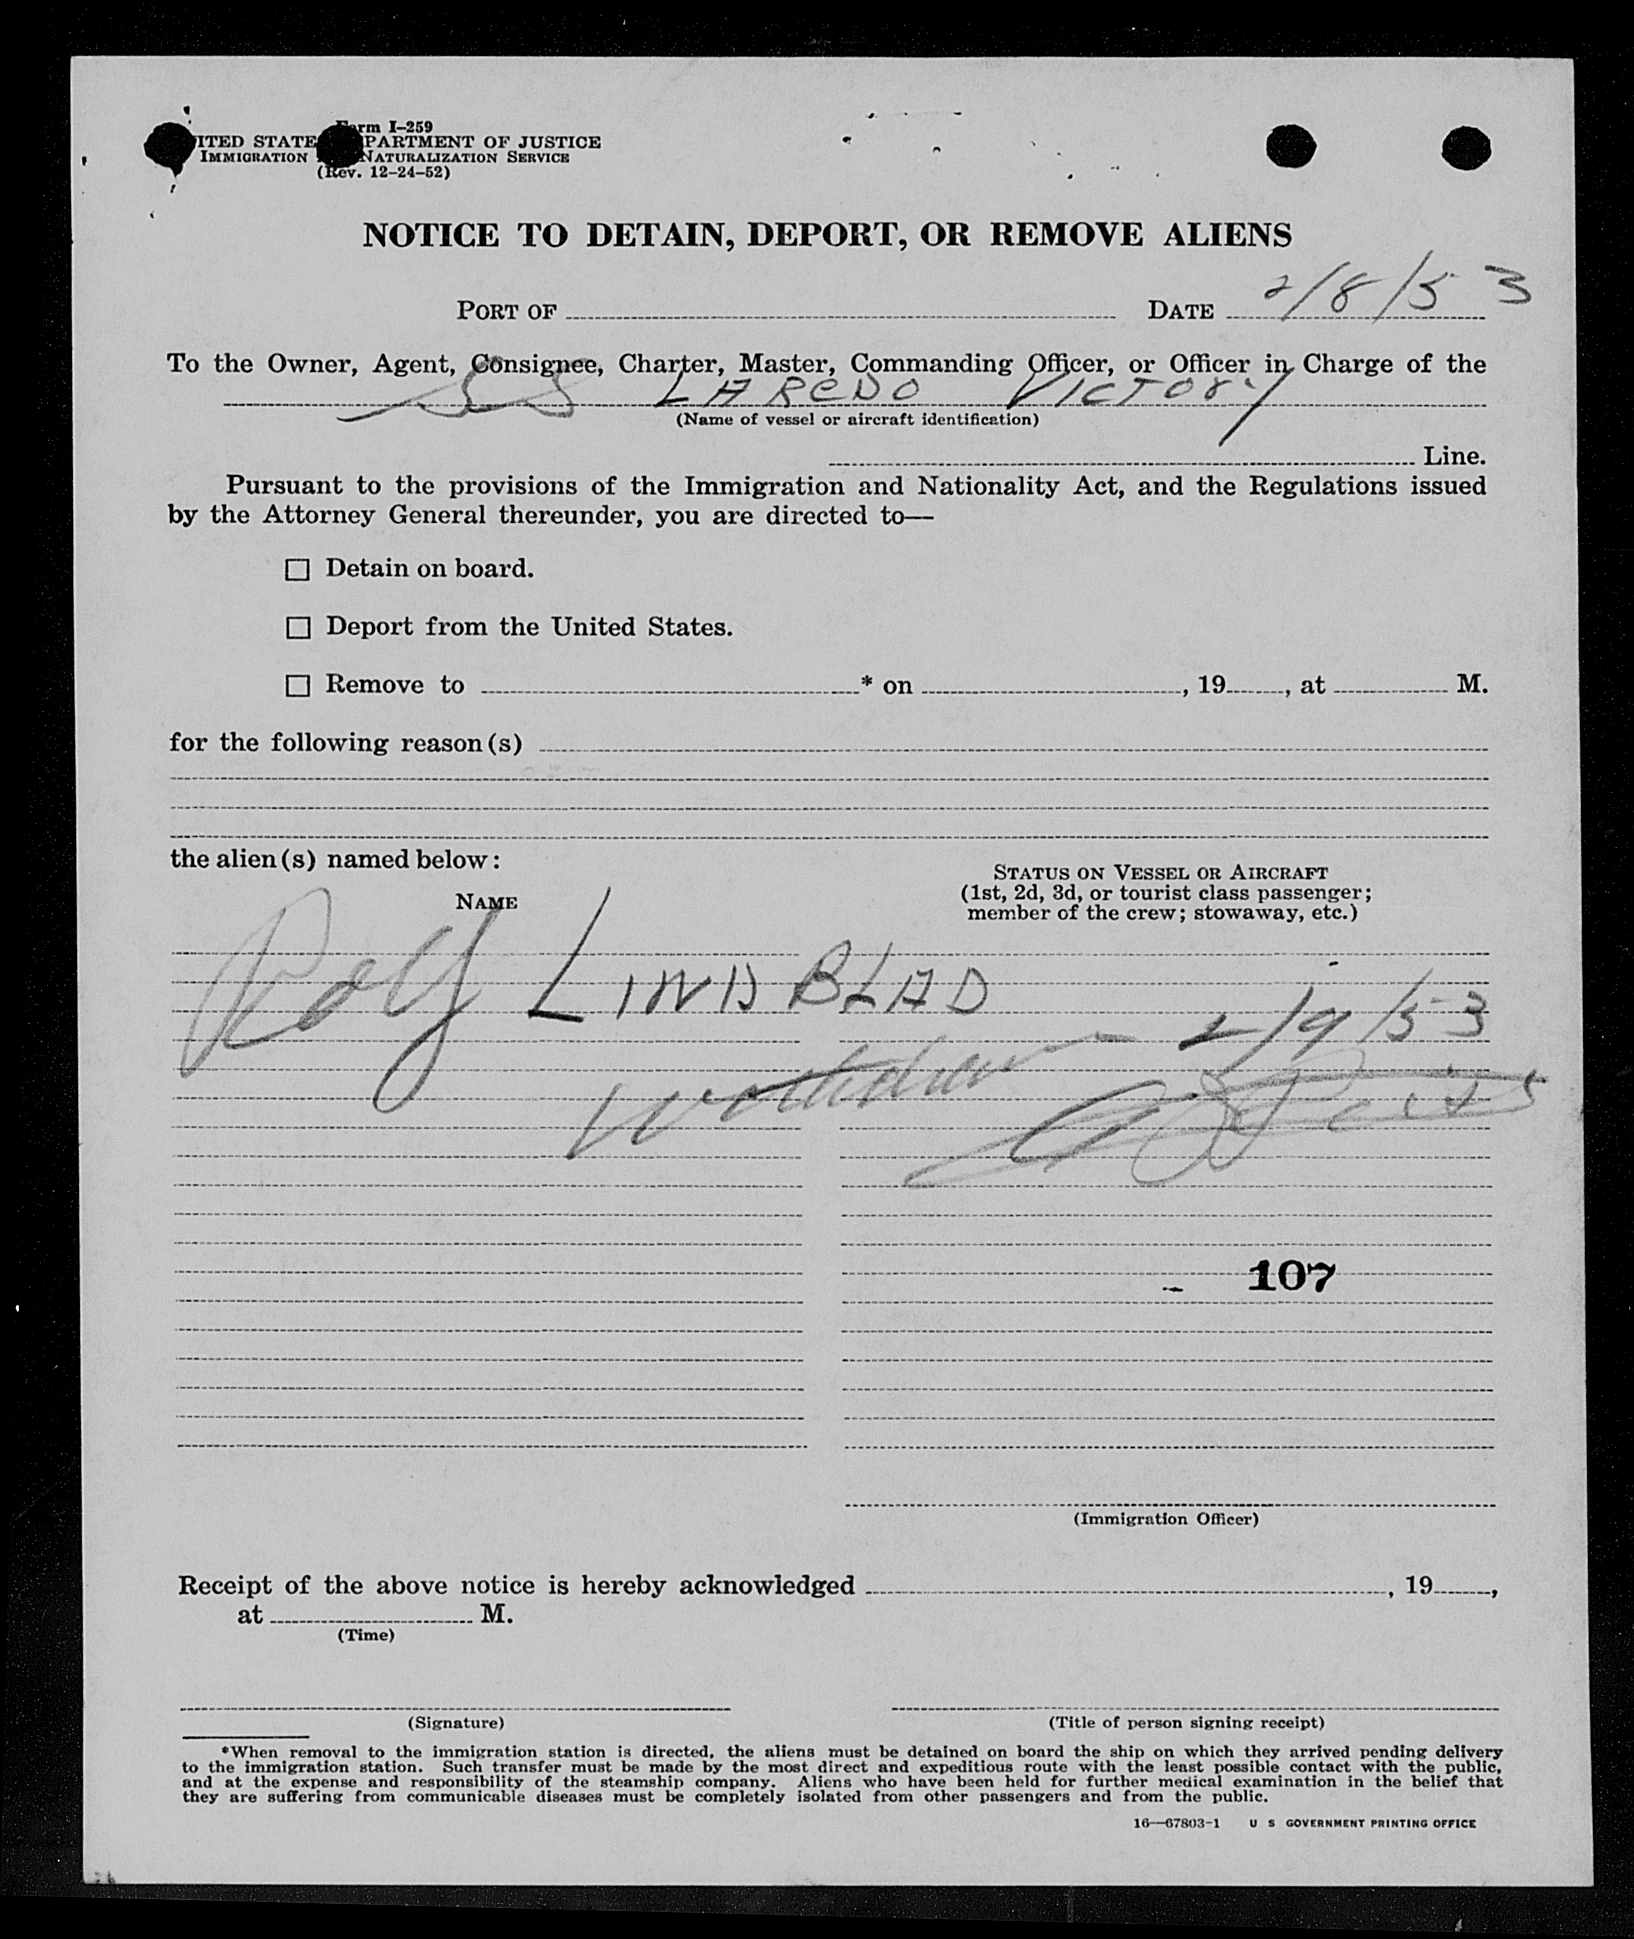 Form I-259
UNITED STATES DEPARTMENT OF JUSTICE
IMMIGRATION AND NATURALIZATION SERVICE
(Rev. 12-24-52)
NOTICE TO DETAIN, DEPORT, OR REMOVE ALIENS
PORT OF DATE 2/8/53
To the Owner, Agent, Consignee, Charter, Master, Commanding Officer, or Officer in Charge of the
SS LAREDO VICTORY
(Name of vessel or aircraft identification)
Line.
Pursuant to the provisions of the Immigration and Nationality Act, and the Regulations issued
by the Attorney General thereunder, you are directed to—
☐ Detain on board.
☐ Deport from the United States.
☐ Remove to * on , 19 , at M.
for the following reason(s)
the alien(s) named below:
NAME
STATUS ON VESSEL OR AIRCRAFT
(1st, 2d, 3d, or tourist class passenger;
member of the crew; stowaway, etc.)
Rolf LINDBLAD
2/9/53
107
(Immigration Officer)
Receipt of the above notice is hereby acknowledged , 19 ,
at M.
(Time)
(Signature) (Title of person signing receipt)
*When removal to the immigration station is directed, the aliens must be detained on board the ship on which they arrived pending delivery
to the immigration station. Such transfer must be made by the most direct and expeditious route with the least possible contact with the public,
and at the expense and responsibility of the steamship company. Aliens who have been held for further medical examination in the belief that
they are suffering from communicable diseases must be completely isolated from other passengers and from the public.
16—67803-1 U S GOVERNMENT PRINTING OFFICE